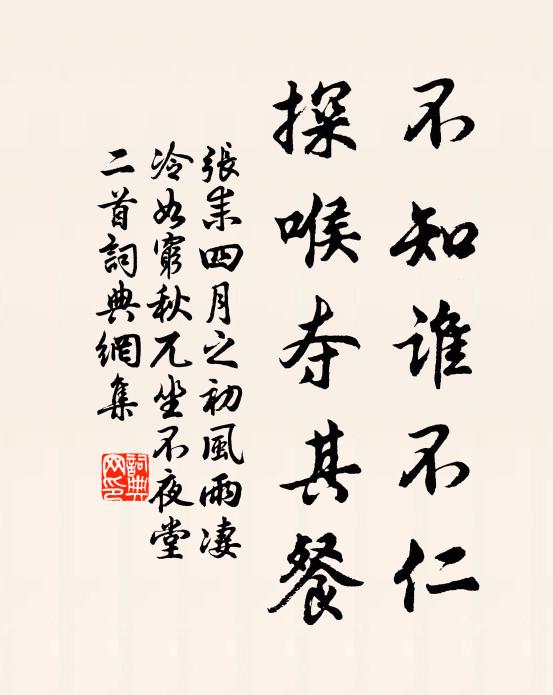 不知谁不仁
探喉夺其餐
張耒四月之初風雨凄
冷如窮秋兀坐不夜堂
二首詞典網集
詞典
网印